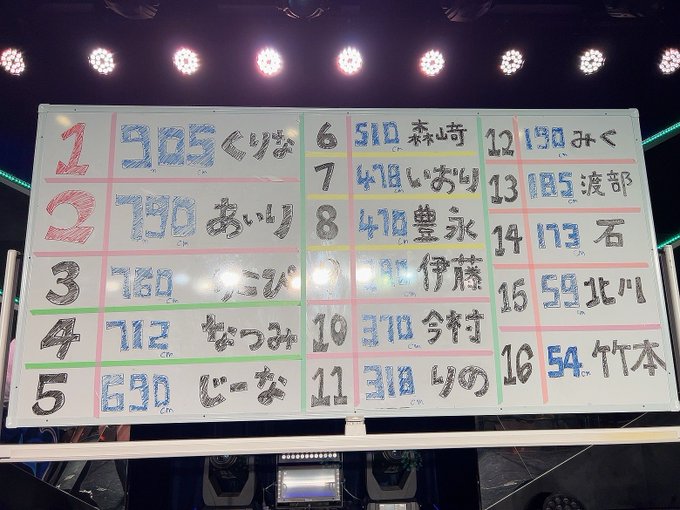 1 905cm くりな
2 790cm あいり
3 760cm りこぴ
4 712cm なつみ
5 690cm じーな
6 510cm 森崎
7 478cm いおり
8 470cm 豊永
9 390cm 伊藤
10 370cm 今村
11 318cm りの
12 190cm みく
13 185cm 渡部
14 173cm 石
15 59cm 北川
16 54cm 竹本